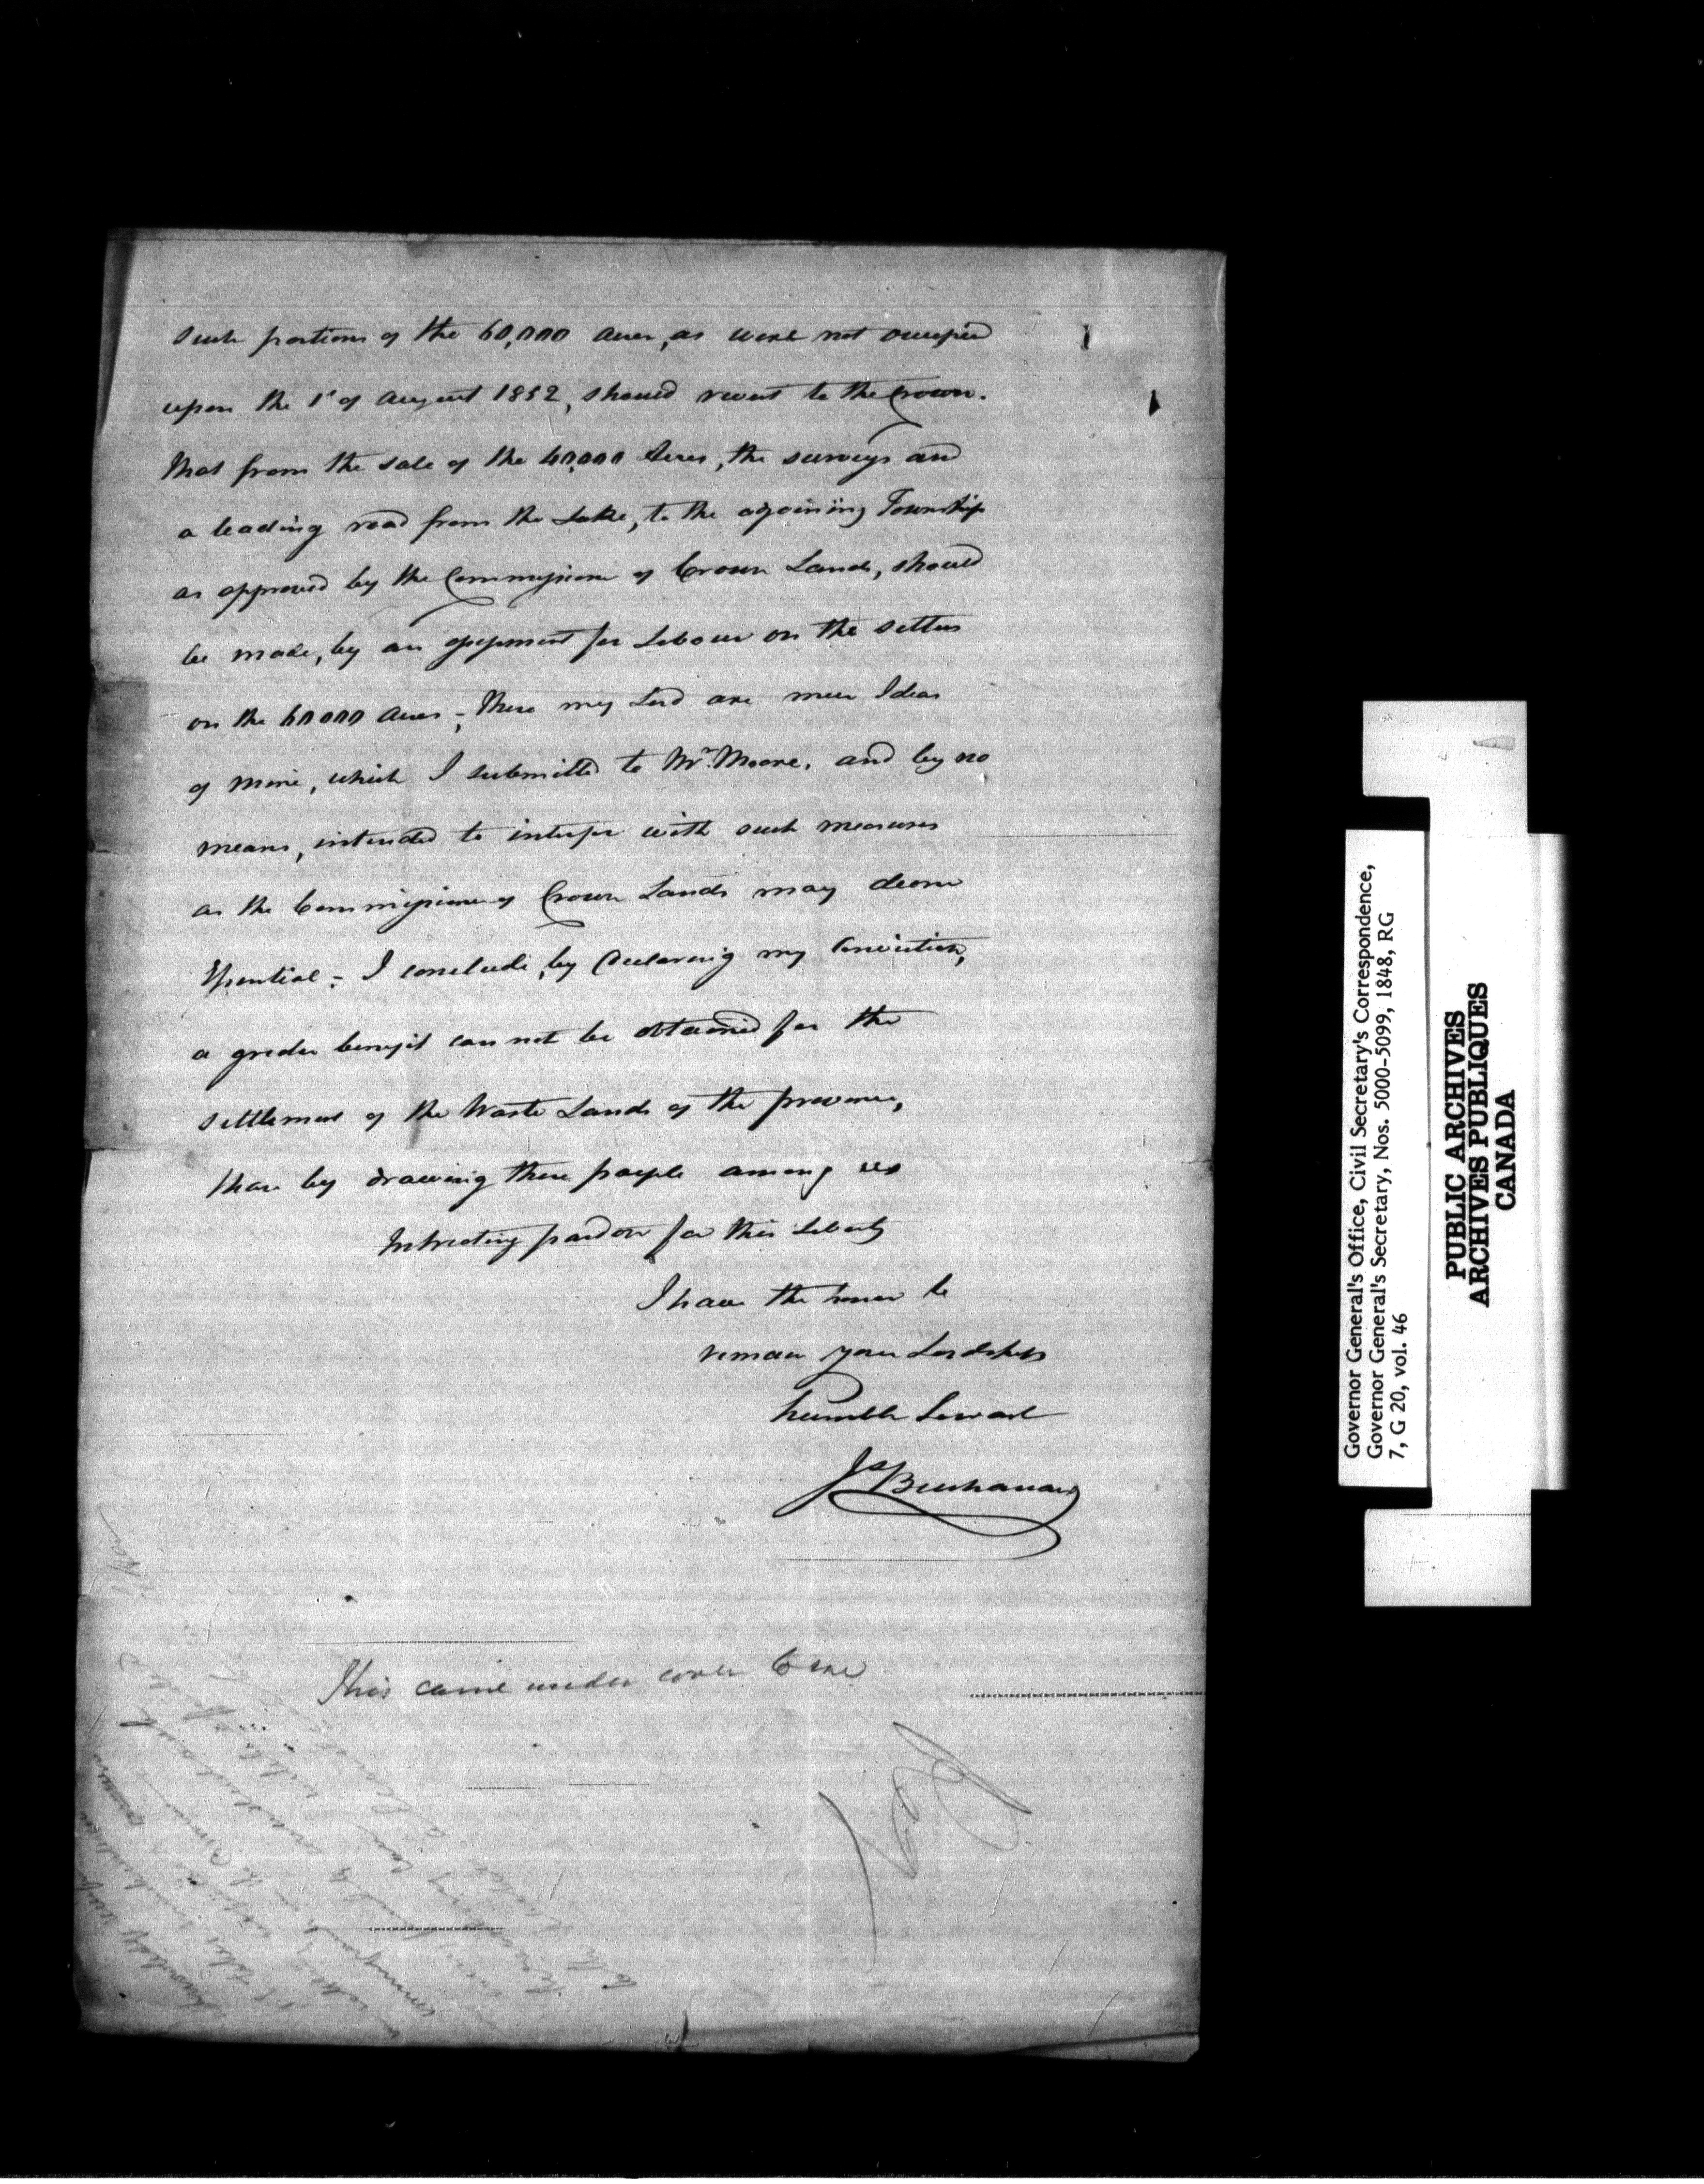 such portions of the 60,000 acres, as were not occupied
upon the 1st of August 1852, should revert to the Crown.
that from the sale of the 40,000 Acres, the surveys and
a leading road from the Lake, to the adjoining Township
as approved by the Commissioner of Crown Lands, should
be made, by an assessment for Labour on the settlers
on the 60000 Acres; These my Lord are mere Ideas
of mine, which I submitted to Mr. Moore, and by no
means, intended to interfere with such measures
as the Commissioner of Crown Lands may deem
Essential; I conclude, by declaring my Conviction,
a greater benefit can not be obtained for the
settlement of the Waste Lands of the province,
than by drawing these people among us
Intreating pardon for this Liberty
I have the honor to
remain your Lordships
humble Servant
Js Buchanan
This came under cover to me
Governor General's Office, Civil Secretary's Correspondence,
Governor General's Secretary, Nos. 5000-5099, 1848, RG
7, G 20, vol. 46
PUBLIC ARCHIVES
ARCHIVES PUBLIQUES
CANADA